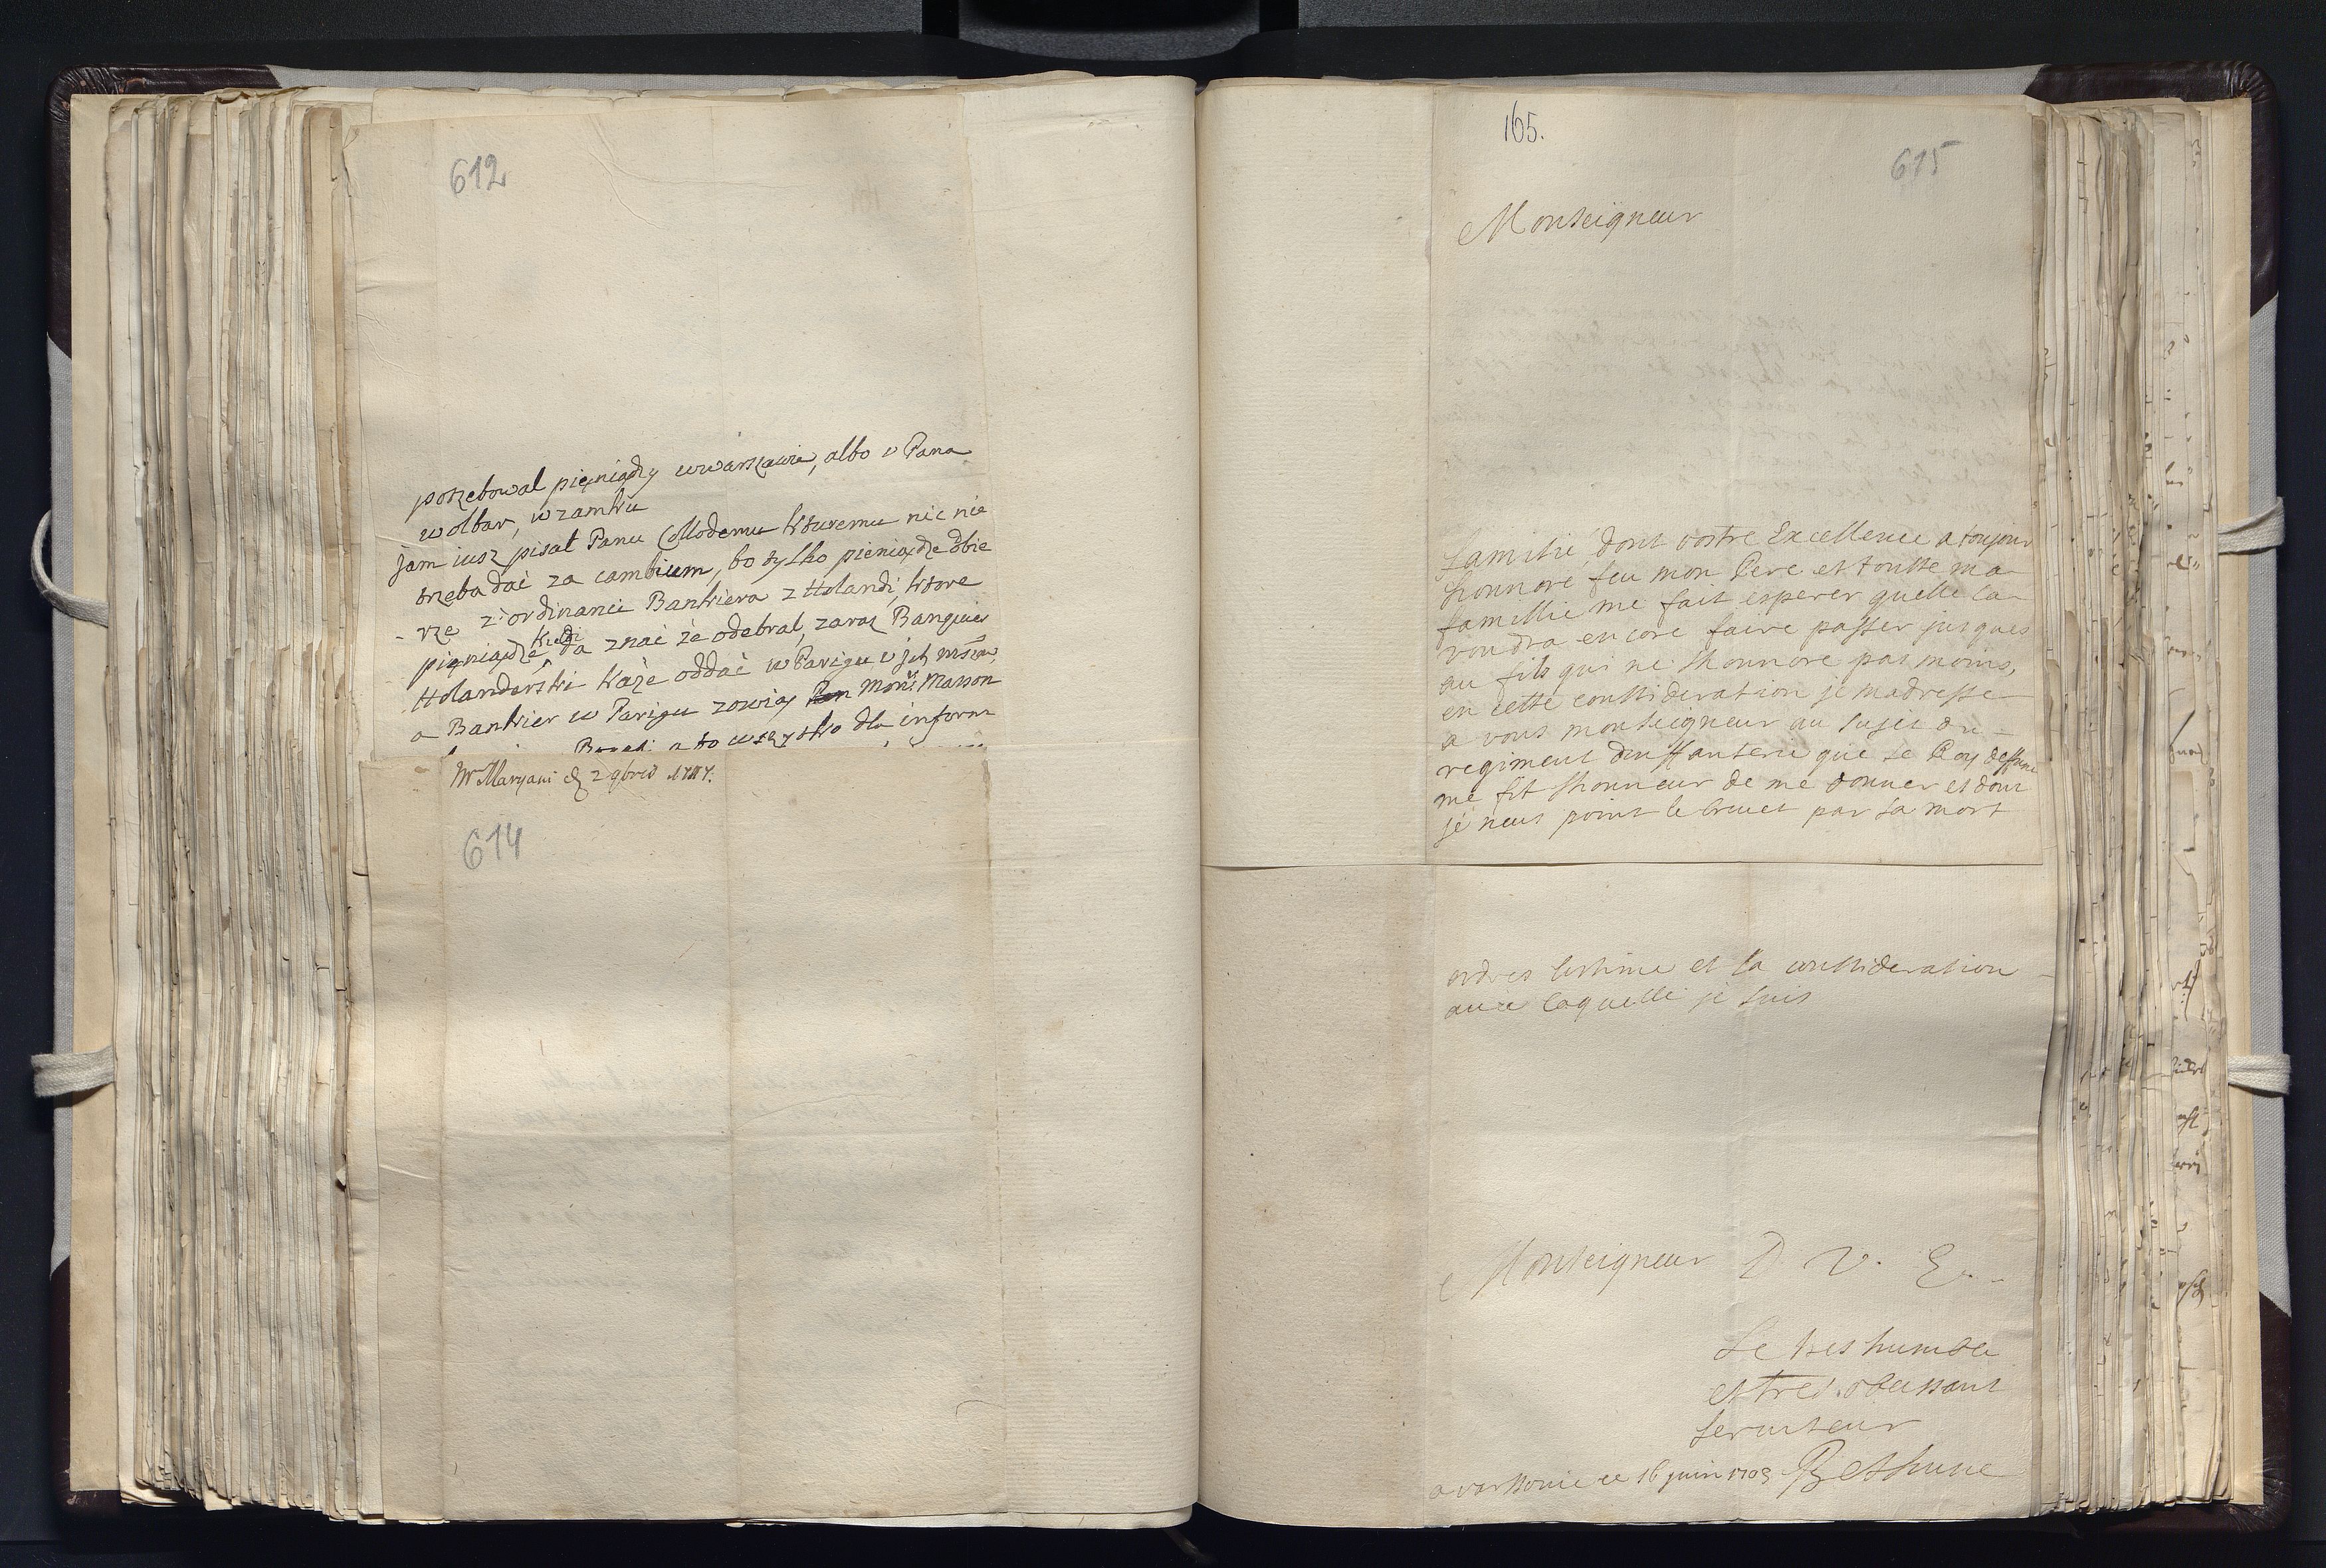 612
potrzebował pieniądzy w warszawie, albo v Pana
wolbar, w zamku
jam iusz pisał Panu Mlodemu kturemu nic nie
trzeba dać za cambium, bo tylko pieniądze dbie
rze z ordinancii Bankiera z Holandi, ktore
kiedi
pieniądze da znać że odebrał, zaraz Banguier
Holanderski każe oddać w Parigu v jch mśiow
a Bankier w Parigu zowią Monsr Masson
a to wszystko dla inform
W Maryani 2 9bris 1717.
614
165.
615
Monseigneur
Lamitié dont vostre Excellence a toujour
honnoré feu mon Pere et toutte ma
famillie me fait esperer quelle la
voudra encore faire passer jusques
au fils qui ne lhonnore pas moins,
en cette conssideration je madresse
a vous monseigneur au sujet du
regiment dinffanterie que le Roy deffunt
me fit lhonneur de me donner et dont
je neus point le brevet par sa mort
ordres lestime et la conssideration
avec laquelle je suis
Monseigneur D V. E.
Le tres humble
et tres obeissant
serviteur
a varssovie ce 16 juin 1703 Bethune